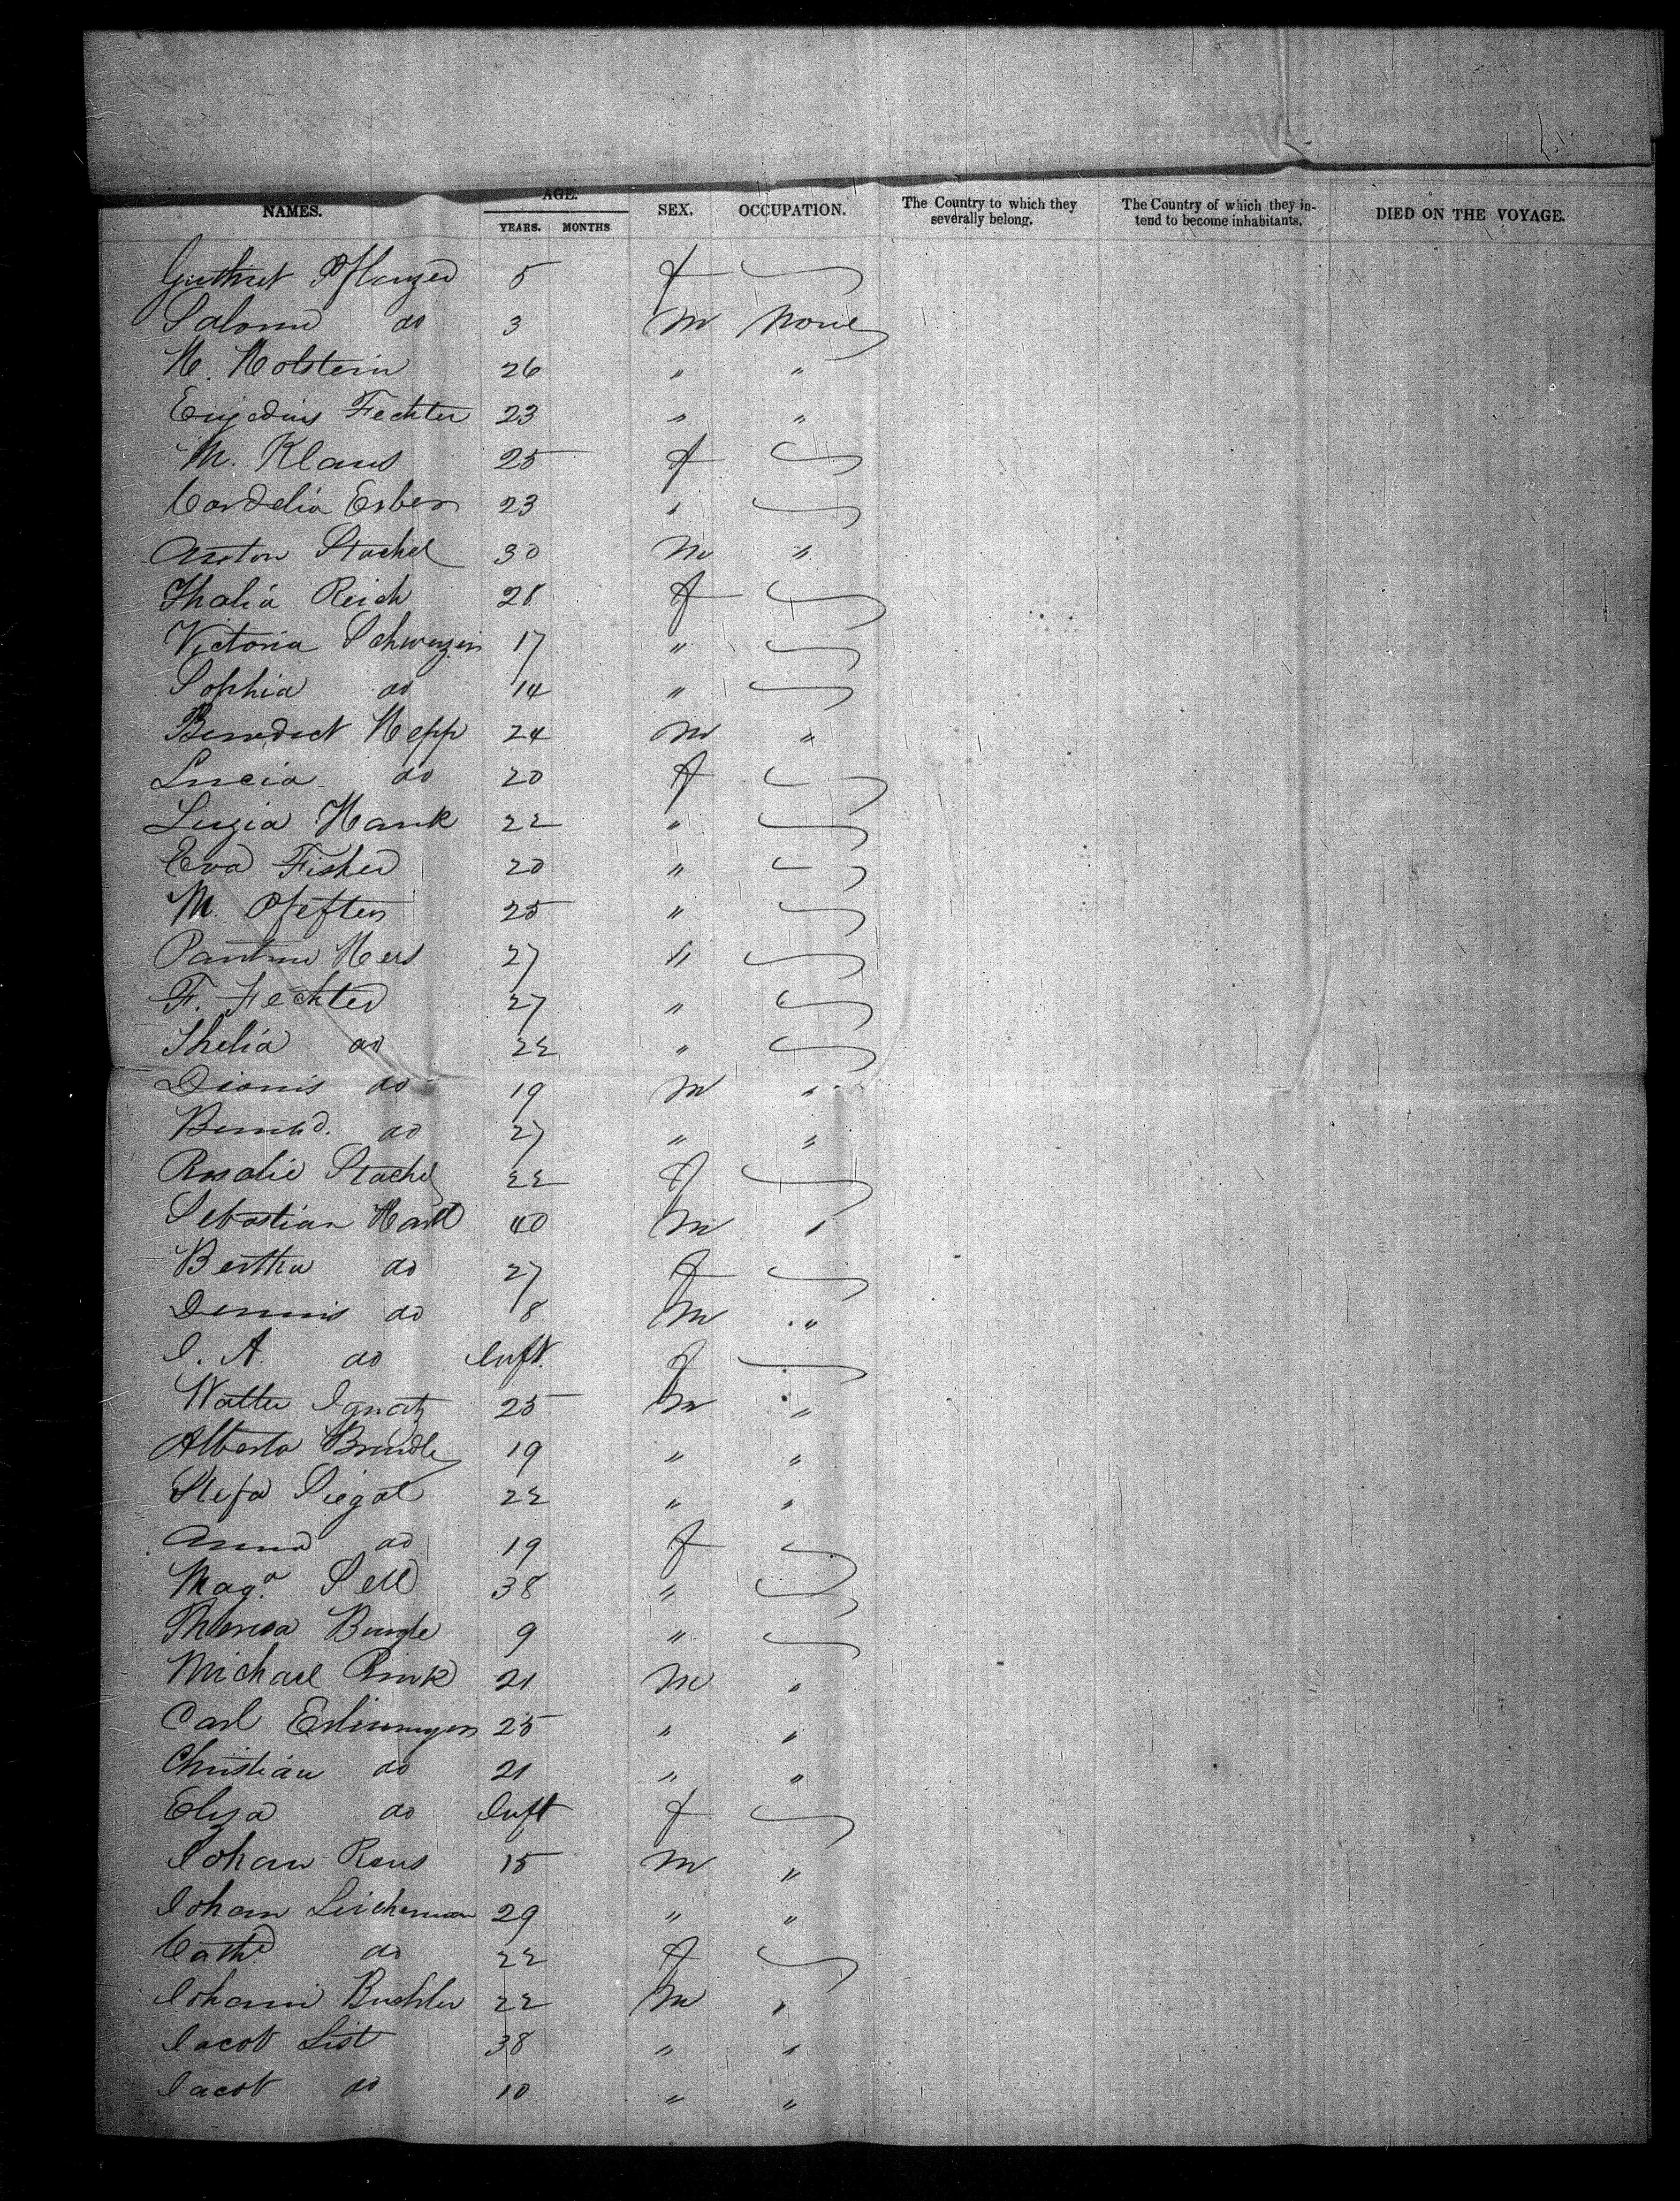 NAMES. AGE. YEARS. MONTHS SEX. OCCUPATION. The Country to which they severally belong. The Country of which they intend to become inhabitants. DIED ON THE VOYAGE.
5 f
do 3 m None
H. Holstein 26 " "
Fechter 23 " "
M. Klaus 25 f
Cordelia Erber 23 "
Anton Stachel 30 m "
Thalia Reich 28 f
Victoria 17 "
Sophia do 14 "
Benedict Hepp 24 m "
Lucia do 20 f
Luzia Hank 22 "
Eva Fisher 20 "
M. 25 "
27 "
F. Fechter 27 "
Thelia do 22 "
Dionis do 19 m "
do 27 " "
Rosalie Stachel 22 f
Sebastian 40 m "
Bertha do 27 f
Dennis do 8 m "
I. A. do Inft. f
Walter Ignatz 25 m "
Alberto Brindle 19 " "
Stefa Siegal 22 " "
Anna do 19 f
Maga Sell 38 "
Theresa 9 "
Michael Rink 21 m "
Carl 25 " "
Christian do 21 " "
Eliza do Inft f
Johan Raus 15 m "
Johan 29 " "
Cath do 22 f
Johann Buehler 22 m "
Jacob List 38 " "
Jacob do 10 " "